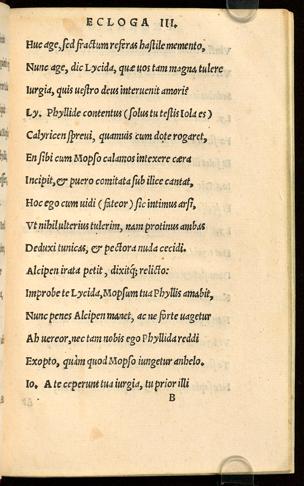 ECLOGA III.
Huc age, sed fractum referas hastile memento,
Nunc age, dic Lycida, quæ uos tam magna tulere
Iurgia, quis uestro deus interuenit amori?
Ly. Phyllide contentus (solus tu testis Iola es)
Calyricen spreui, quamuis cum dote rogaret,
En sibi cum Mopso calamos intexere cæra
Incipit, & puero comitata sub ilice cantat,
Hoc ego cum uidi (fateor) sic intimus arsi,
Vt nihil ulterius tulerim, nam protinus ambas
Deduxi tunicas, & pectora nuda cecidi.
Alcipen irata petit, dixitq; relicto:
Improbe te Lycida, Mopsum tua Phyllis amabit,
Nunc penes Alcipen manet, ac ne forte uagetur
Ah uereor, nec tam nobis ego Phyllida reddi
Exopto, quàm quod Mopso iungetur anhelo.
Io. A te ceperunt tua iurgia, tu prior illi
B